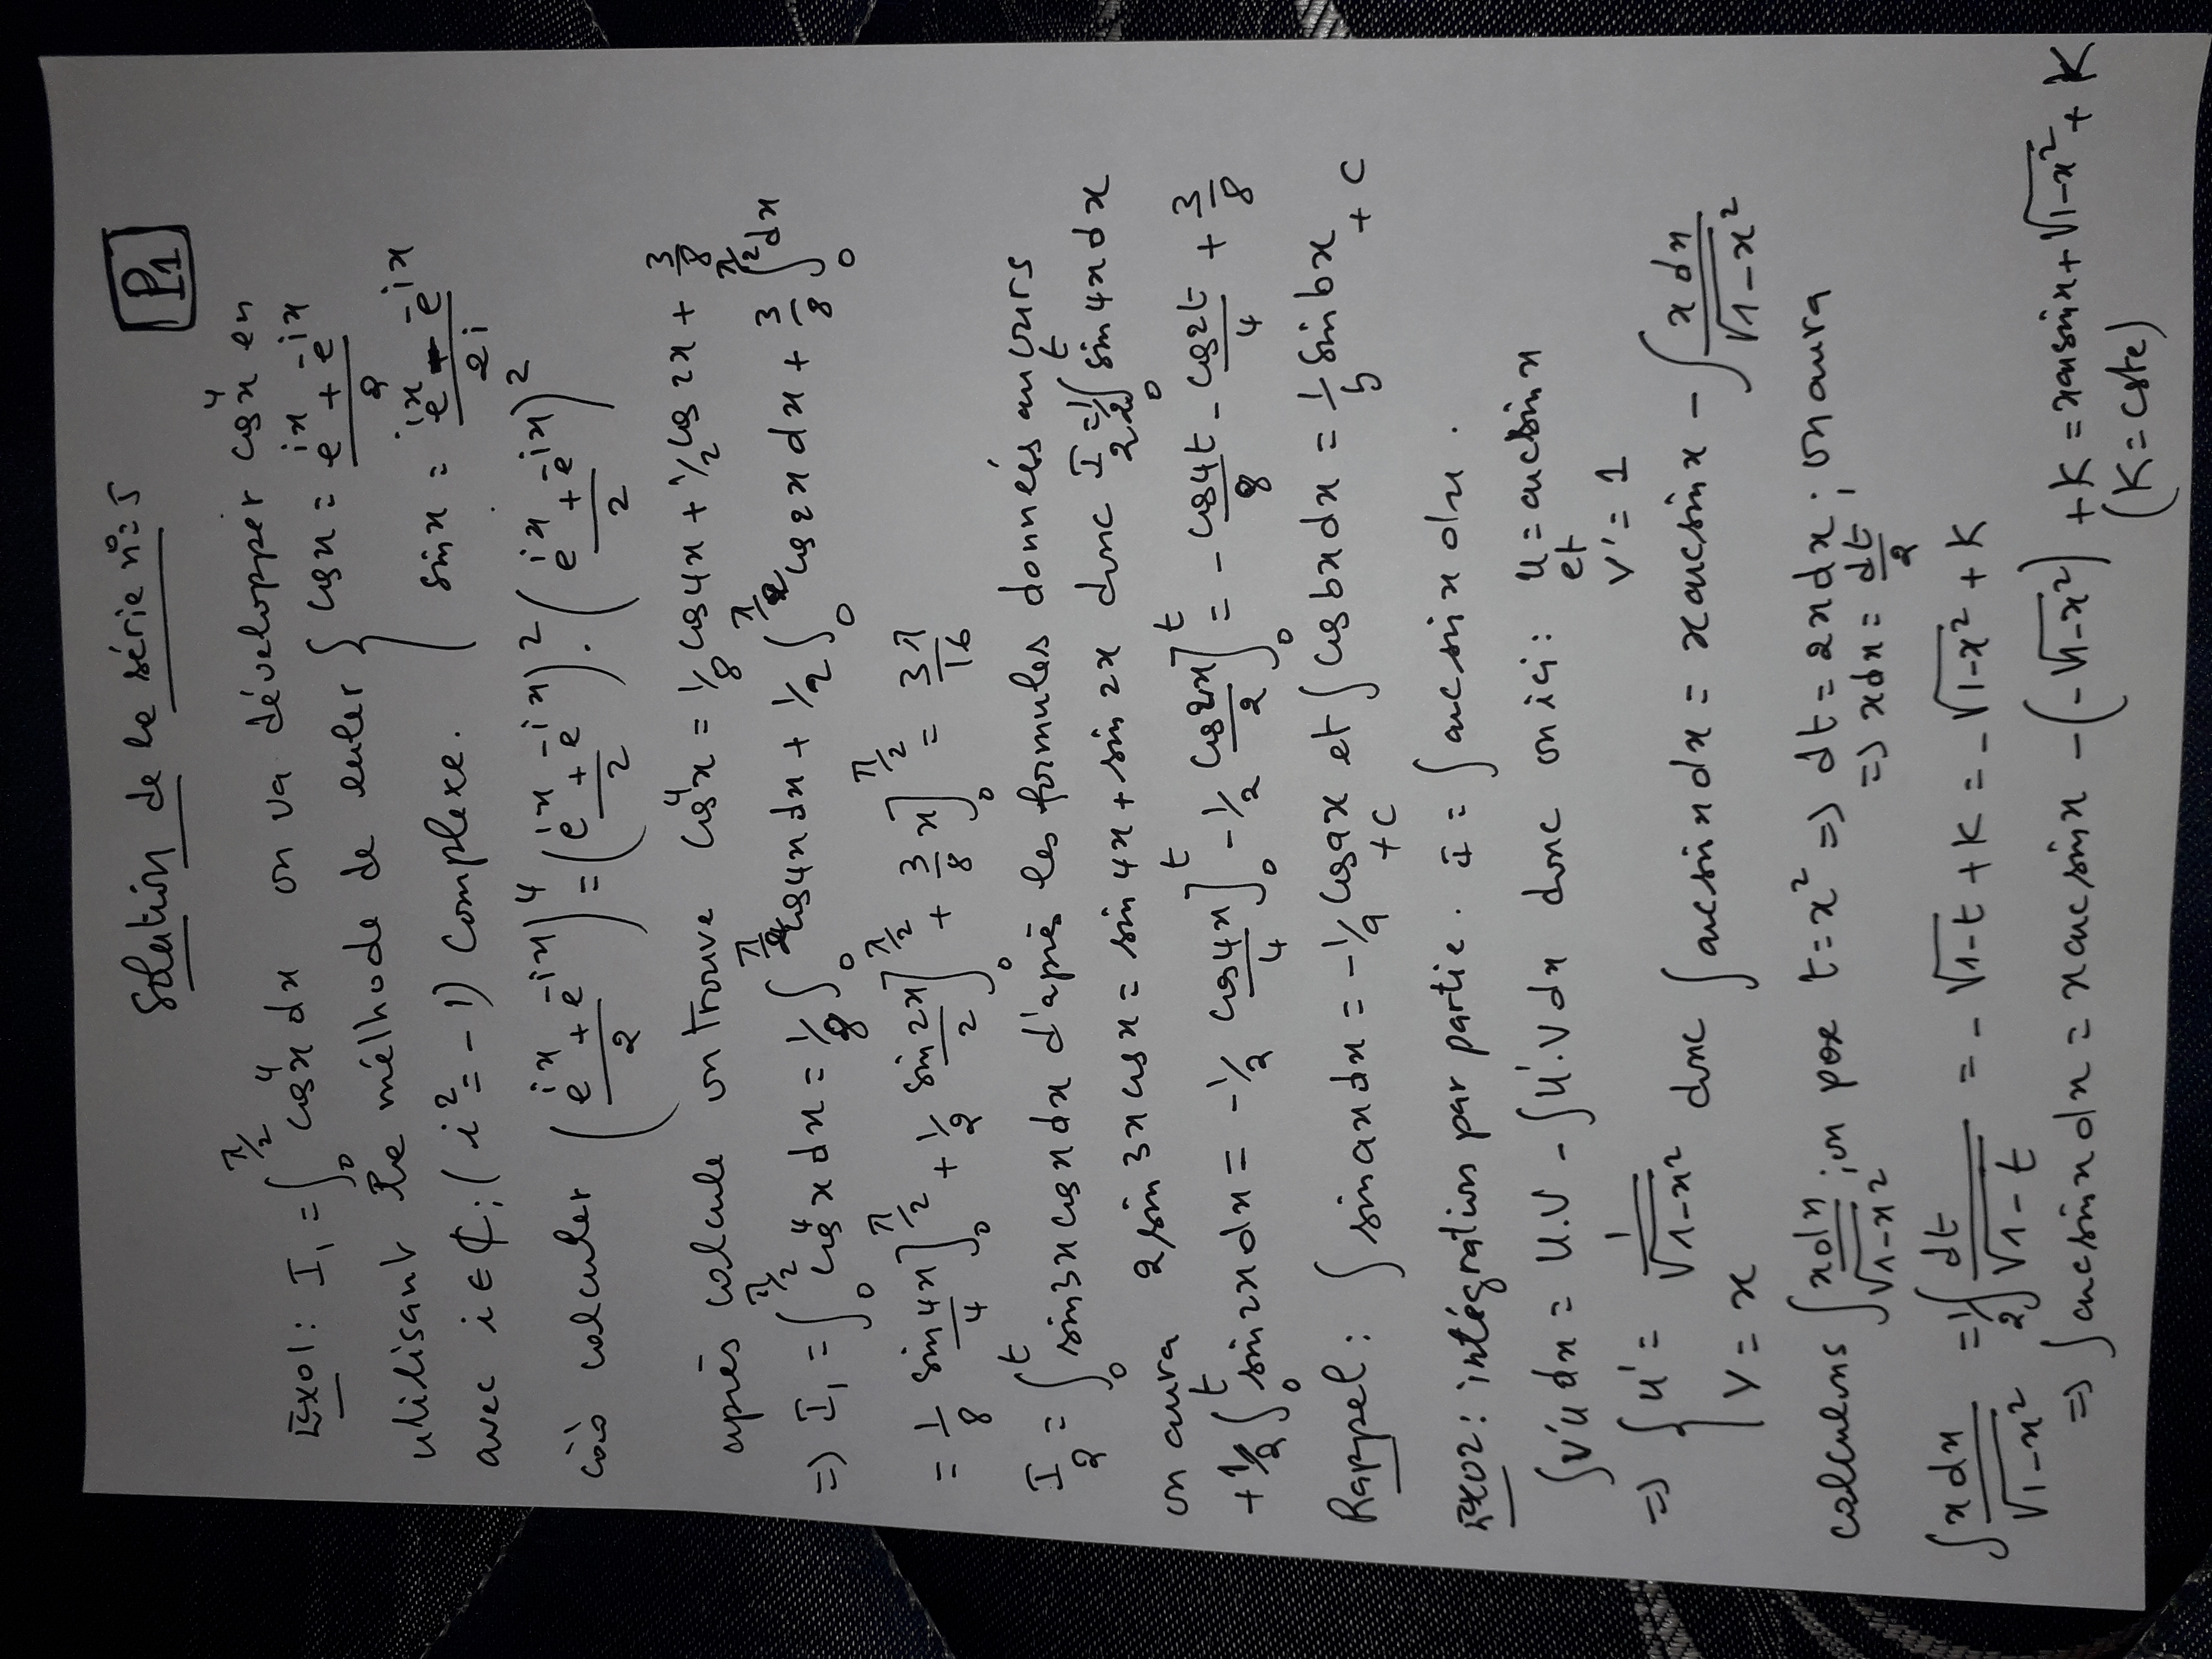 Solution de la série n°=5 P1
Exo1: I₁ = ∫₀^{π/2} cos⁴x dx on va développer cos⁴x en
utilisant la mélhode de euler { cosx = (e^{ix} + e^{-ix})/2
avec i ∈ ₵; (i² = -1) complexe. sinx = (e^{ix} - e^{-ix})/2i
càd calculer ((e^{ix} + e^{-ix})/2)⁴ = ((e^{ix} + e^{-ix})/2)² . ((e^{ix} + e^{-ix})/2)²
après calcule on trouve cos⁴x = 1/8 cos4x + 1/2 cos2x + 3/8
=> I₁ = ∫₀^{π/2} cos⁴x dx = 1/8 ∫₀^{π/2} cos4x dx + 1/2 ∫₀^{π/2} cos2x dx + 3/8 ∫₀^{π/2} dx
= 1/8 sin4x/4 ]₀^{π/2} + 1/2 sin2x/2 ]₀^{π/2} + 3/8 x ]₀^{π/2} = 3π/16
I₂ = ∫₀^t sin3x cosx dx d'après les formules données au cours
on aura 2 sin3x cosx = sin4x + sin2x donc I₂ = 1/2 ∫₀^t sin4x dx
+ 1/2 ∫₀^t sin2x dx = -1/2 cos4x/4 ]₀^t - 1/2 cos2x/2 ]₀^t = - cos4t/8 - cos2t/4 + 3/8
Rappel: ∫ sin ax dx = -1/a cos ax + c et ∫ cos bx dx = 1/b sin bx + c
Exo2: intégration par partie. i = ∫ arcsin x dx.
∫ v'u dx = u.v - ∫ u'.v dx donc on ici: u = arcsin x et v' = 1
=> { u' = 1/√(1-x²) v = x donc ∫ arcsin x dx = x arcsin x - ∫ x dx/√(1-x²)
calculons ∫ x dx/√(1-x²); on pose t = x² => dt = 2x dx; on aura => x dx = dt/2
∫ x dx/√(1-x²) = 1/2 ∫ dt/√(1-t) = -√(1-t) + K = -√(1-x²) + K
=> ∫ arcsin x dx = x arcsin x - (-√(1-x²)) + K = x arcsin x + √(1-x²) + K
(K = cste)